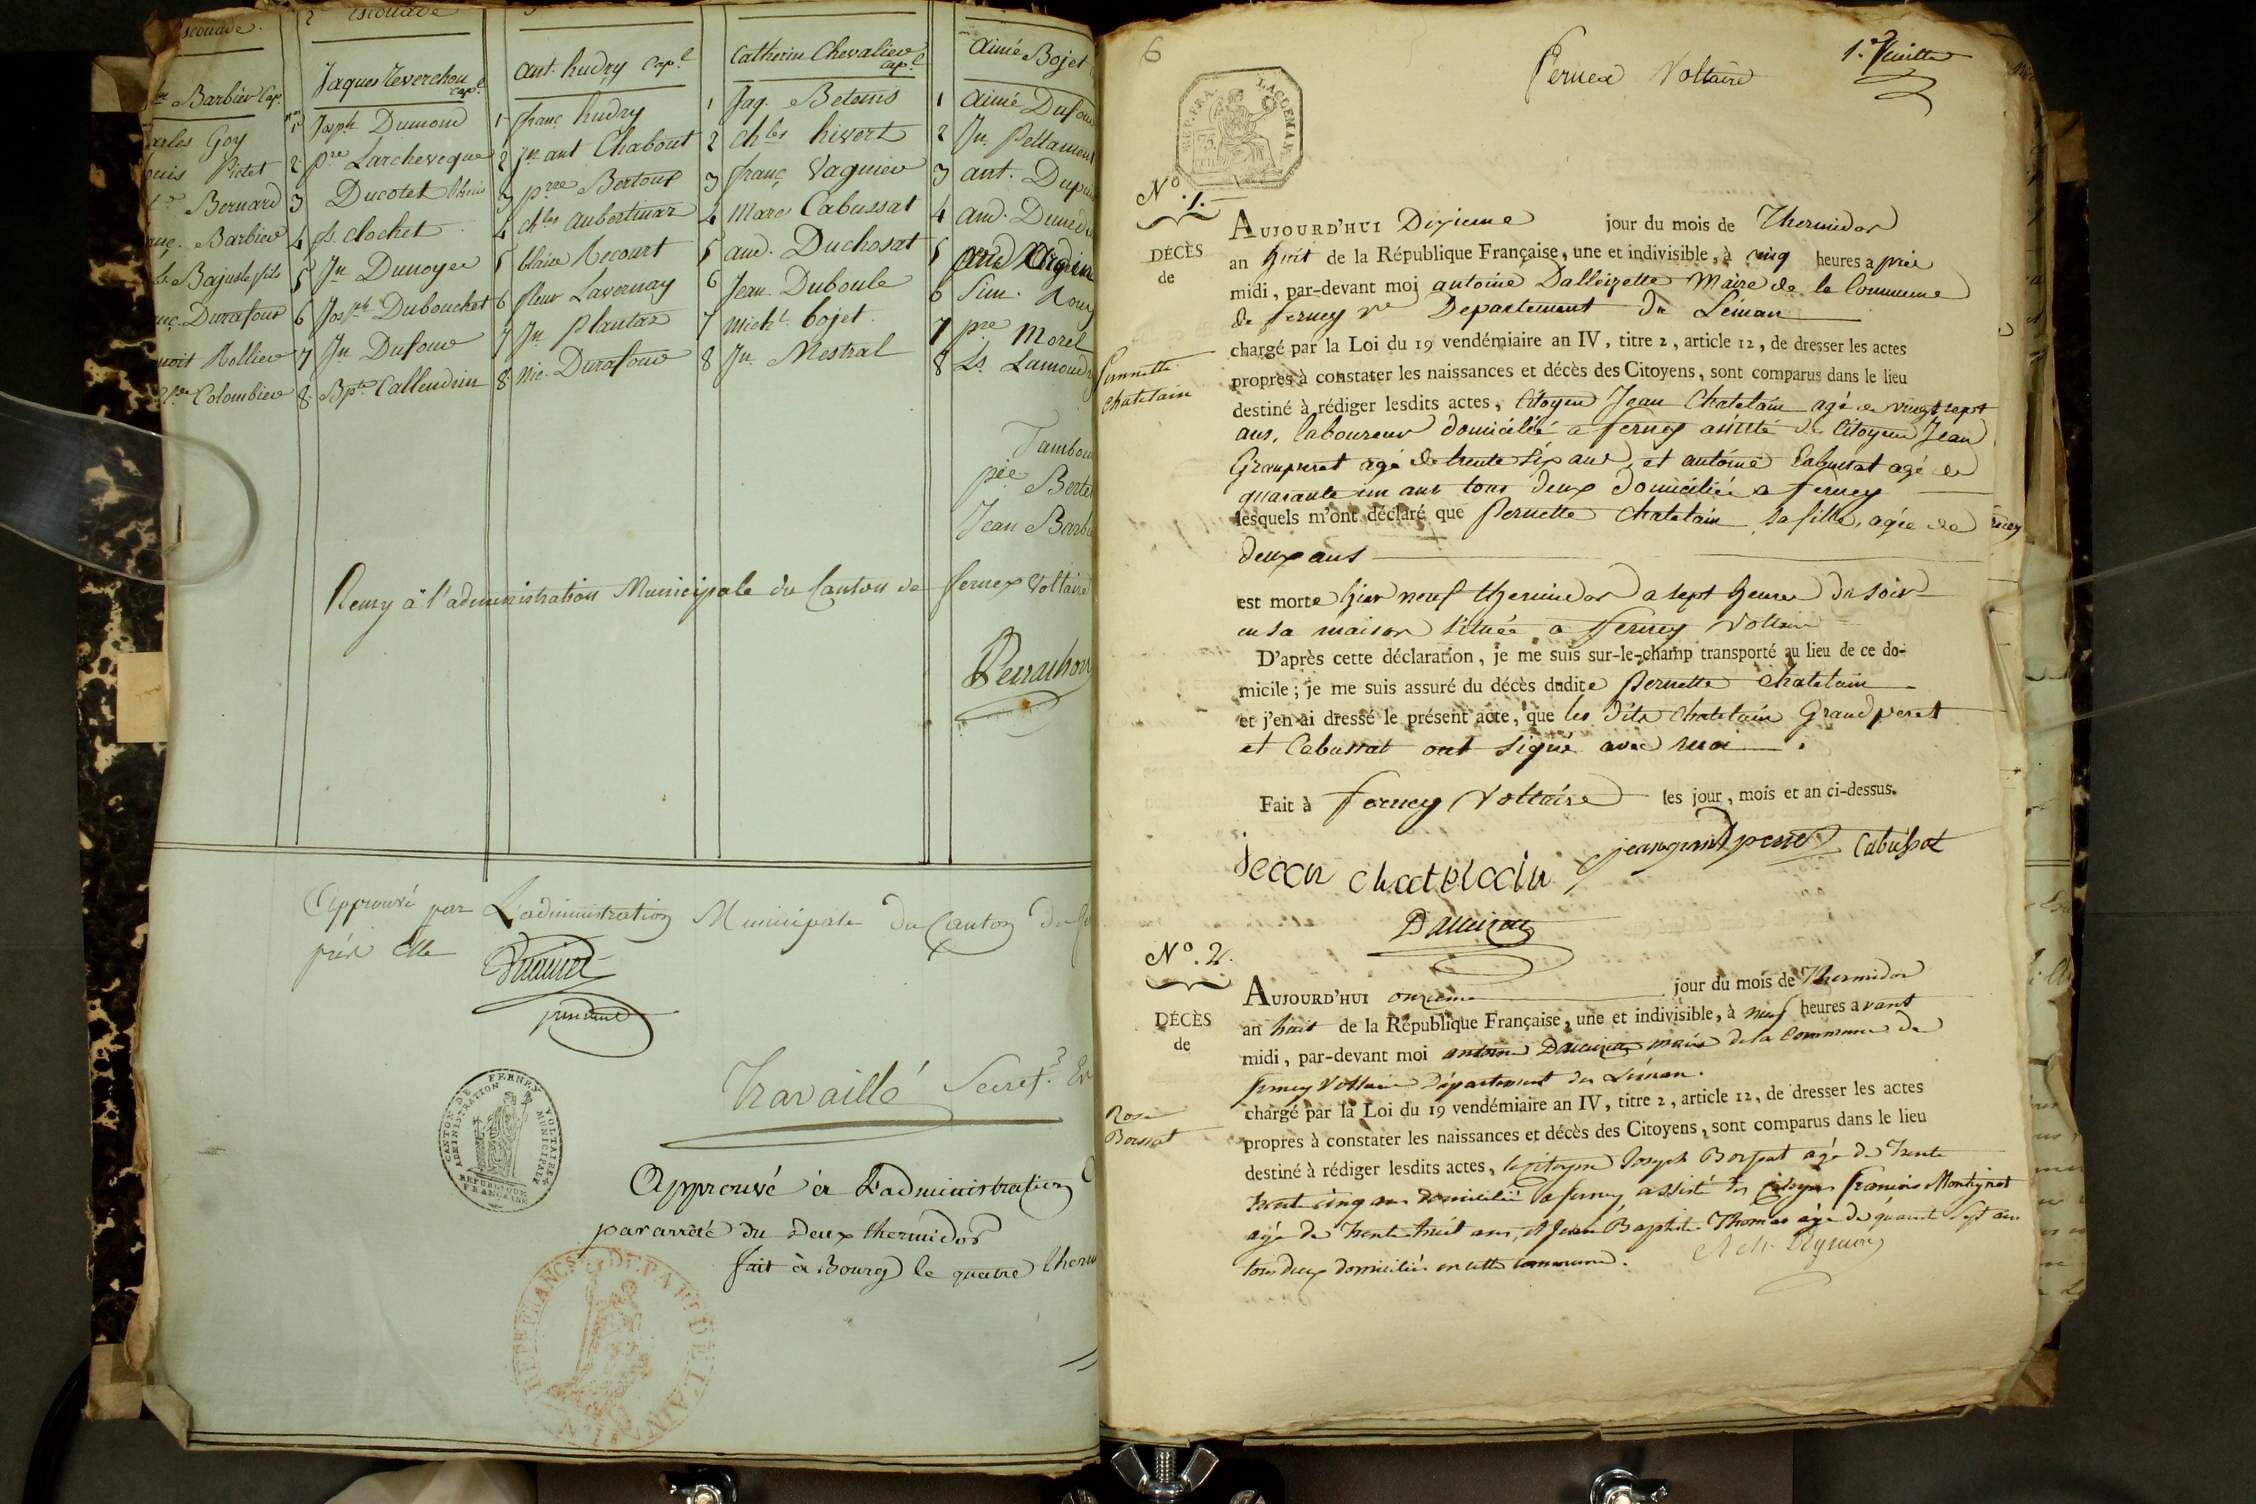 escouade.
2e escouade
Barbier Cap.
Jaques Teverchon
Cap.l
ant. hudry Cap.l
Catherin Chevalier
Cap.l
aimé Bojet
Charles Goy
1 Joseph Dumond
1 franç hudry
1 Jaq. Betems
1 aimé Dufour
Louis Pictet
2 pre Larcheveque
2 Jn ant Chabout
2 Chles hivert
2 Jn. Pellamont
Bernard
3 Ducotet
3 prre Bertout
3 franç Vagnier
3 ant. Dupuis
Barbier
4 fs. Clochet
4 Chles aubertinaz
4 Marc Cabussat
4 and.
Bajusle fils
5 Jn Dunoyer
5 blaise Recourt
5 and. Duchosat
5 and
Durafour
6 Josph Dubouchet
6 fleur Lavernay
6 Jean. Duboule
6 Sim. Roux
Rollier
7 Jn Dufour
7 Jn Plantaz
7 Michl. bojet
7 pre Morel
Colombier
8 Bpte Callendrin
8 Nic. Durafour
8 Jn. Mestral
8 Ls. Lamoud
Tambour
pre Berte
Jean Barb
Remy à l'administration Municipale du Canton de fernex Voltaire
Approuvé par L'administration Municipale du Canton de
près elle
président
Travaillé Secret.re
CANTON DE FERNEY VOLTAIRE
ADMINISTRATION MUNICIPALE
REPUBLIQUE
FRANÇAISE
Approuvé à L'administration
par arrêté du deux thermidor
fait à Bourg le quatre
REP. FRANÇSE. DEPARt. DE L'AIN
6
Fernex Voltaire
1.re feuille
REP. FRA.
75
N.o 1.
AUJOURD'HUI Dixieme jour du mois de Thermidor
DÉCÈS
de
an huit de la République Française, une et indivisible, à cinq heures après
midi, par-devant moi antoine Dalleizette Maire de la Commune
de ferney Ve Departement du Léman
chargé par la Loi du 19 vendémiaire an IV, titre 2, article 12, de dresser les actes
Pernette
Chatelain
propres à constater les naissances et décès des Citoyens, sont comparus dans le lieu
destiné à rédiger lesdits actes, Citoyen Jean Chatelain agé de vingt sept
ans, laboureur domicilié a ferney assisté des Citoyens Jean
Granperret agé de trente six ans, et antoine Cabussat agé de
quarante un ans tous deux domiciliés a ferney
lesquels m'ont déclaré que Pernette Chatelain sa fille, agée de
deux ans
est morte hier neuf thermidor a sept heures du soir
en sa maison située a ferney Voltaire
D'après cette déclaration, je me suis sur-le-champ transporté au lieu de ce do-
micile; je me suis assuré du décès dudite Pernette Chatelain
et j'en ai dressé le présent acte, que les dits Chatelain Grandperet
et Cabussat ont signé avec moi.
Fait à ferney Voltaire les jour, mois et an ci-dessus.
jean grandperret Cabussat
jean chatelain
Dalleizette
N.o 2.
AUJOURD'HUI onzieme jour du mois de Thermidor
DÉCÈS
de
an huit de la République Française, une et indivisible, à neuf heures avant
midi, par-devant moi antoine Dalleizette maire de la Commune de
ferney Voltaire Département du Léman.
chargé par la Loi du 19 vendémiaire an IV, titre 2, article 12, de dresser les actes
Rose
Bossat
propres à constater les naissances et décès des Citoyens, sont comparus dans le lieu
destiné à rédiger lesdits actes, le citoyen Joseph Bossat agé de Trente
trente cinq ans domicilié a ferney assisté des citoyens francois Montignot
agé de trente huit ans, et Jean Baptiste Thomas agé de quarante sept ans
tous deux domiciliés en cette commune.